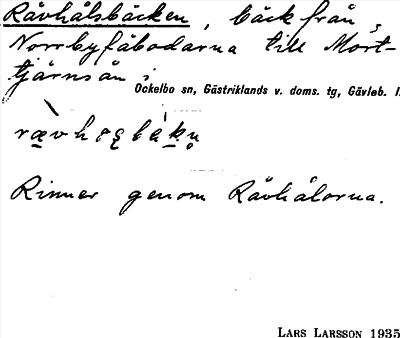 Rävhålsbäcken, bäck från
Norrbyfäbodarna till Mort-
tjärnsån i
Ockelbo sn, Gästriklands v. doms. tg, Gävleb. l.
Rinner genom Rävhålorna.
LARS LARSSON 1935